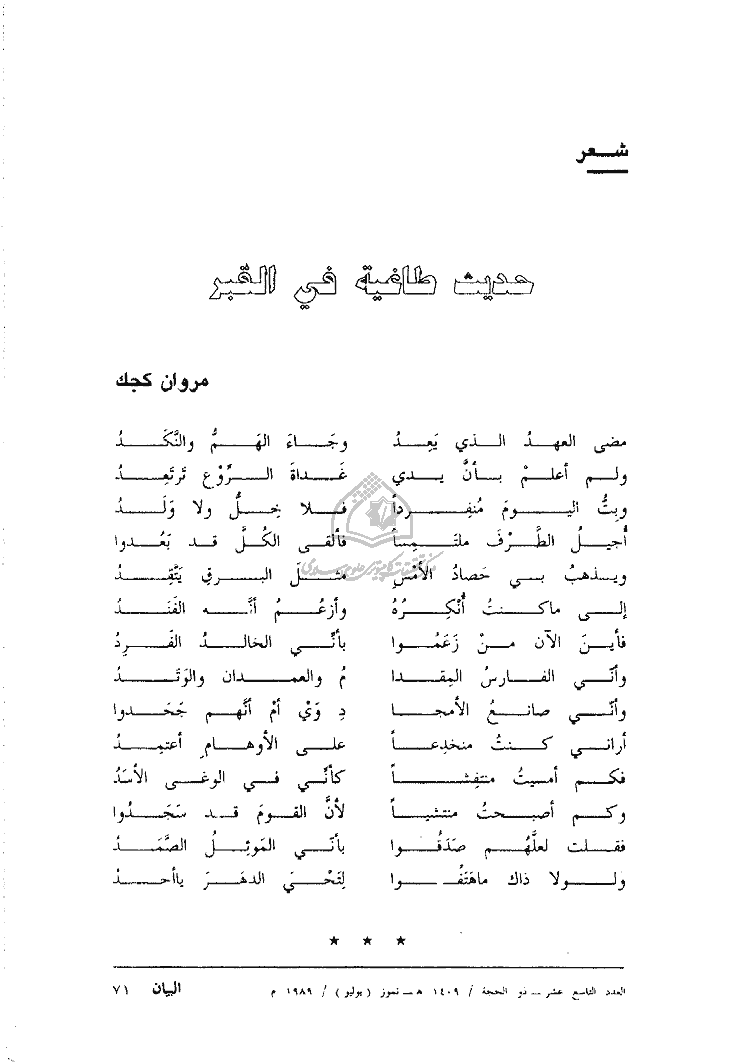 شعر
حديث طاغية في القبر
مروان كجك
مضى العهدُ الذي يَعِدُ وجَاءَ الهَمُّ والنَّكَدُ
ولم أعلمْ بأنَّ يدي غَداةَ الرَّوْعِ تَرتَعِدُ
وبِتُّ اليومَ مُنفرداً فلا خِلٌّ ولا وَلَدُ
أُجيلُ الطَّرْفَ ملتَمِساً فألقى الكُلَّ قد بَعُدوا
ويذهبُ بي حَصادُ الأمْسِ مثلَ البرقِ يَتَّقِدُ
إلى ماكنتُ أُنْكِرُهُ وأزعُمُ أنَّه الفَنَدُ
فأينَ الآن مَنْ زَعَمُوا بأنِّي الخالدُ الفَرِدُ
وأنِّي الفارسُ المِقدا مُ والعمدان والوَتَدُ
وأنِّي صانعُ الأمجا دِ وَيْ أمْ أنَّهم جَحَدوا
أراني كنتُ منخدِعاً على الأوهامِ أعتمِدُ
فكم أمسيتُ منتفِشاً كأنِّي في الوغى الأسَدُ
وكم أصبحتُ منتشياً لأنَّ القومَ قد سَجَدُوا
فقلت لعلَّهُم صَدَقُوا بأنّي المَوئِلُ الصَّمَدُ
ولولا ذاك ماهَتَفُوا لِتَحْيَ الدهَرَ ياأحدُ
★ ★ ★
العدد التاسع عشر ــ ذو الحجة / ١٤٠٩ هـ ــ تموز (يوليو) / ١٩٨٩ م البيان ٧١